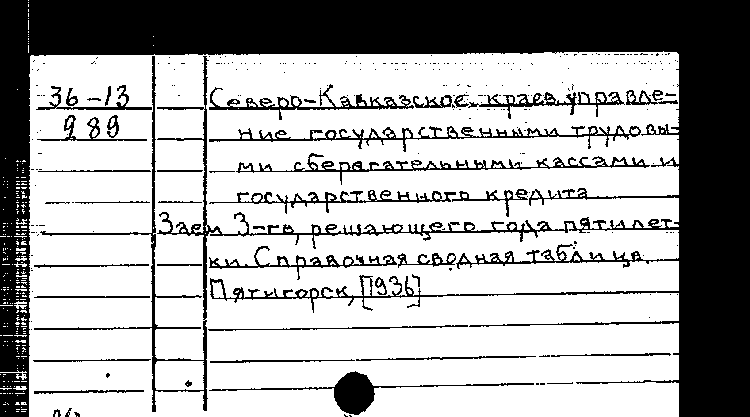 36-13 Северо-Кавказское краев. управле-
989 ние государственными трудовы-
ми сберегательными кассами и
государственного кредита
Заем 3-го, решающего года пятилет-
ки. Справочная сводная таблица.
Пятигорск, [1936]